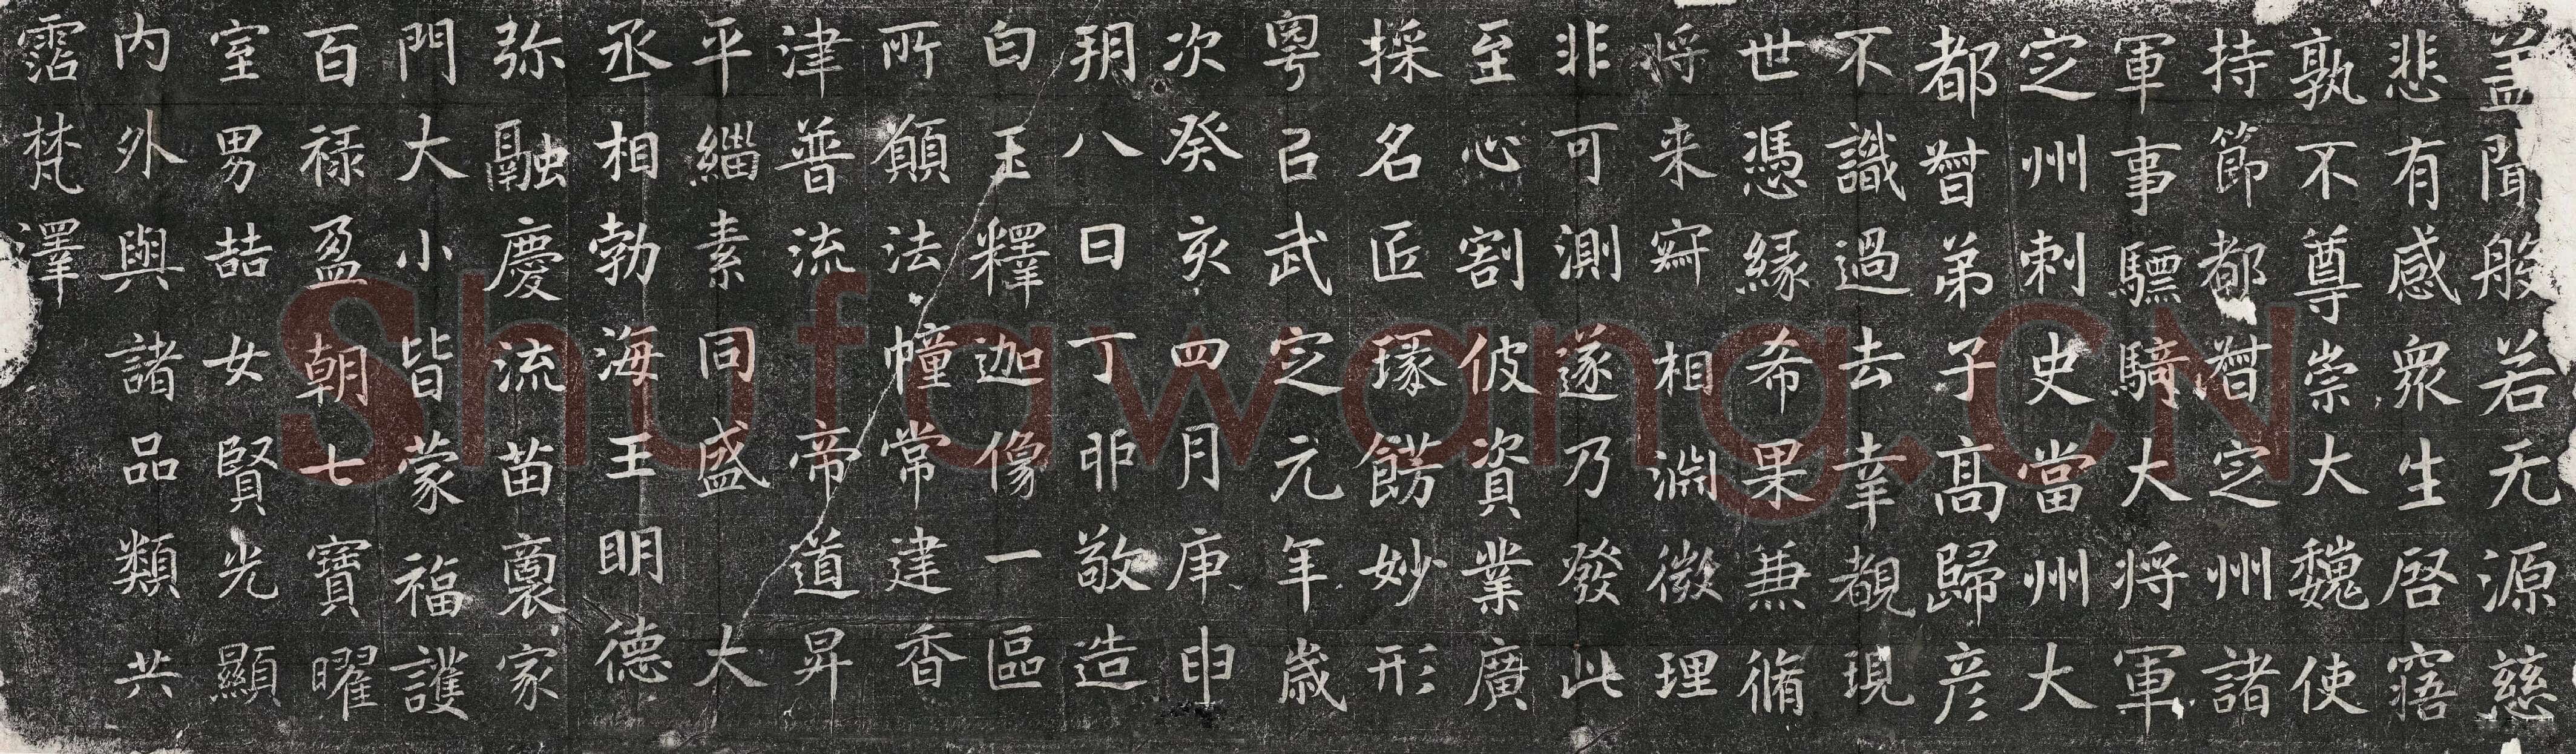 盖聞般若无源慈
悲有感衆生啓寤
孰不尊崇大魏使
持節都督定州諸
軍事驃騎大将軍
定州刺史當州大
都督弟子高歸彦
不識過去幸覩現
世憑縁希果兼脩
将来寂相淵微理
非可測遂乃發此
至心割彼資業廣
採名匠琢餝妙形
粤以武定元年歲
次癸亥四月庚申
朔八日丁卯敬造
白玉釋迦像一區
所願法幢常建香
津普流帝道昇
平緇素同盛大
丞相勃海王明德
弥融慶流苗裔家
門大小皆蒙福護
百禄盈朝七寶曜
室男喆女賢光顯
内外與諸品類共
霑梵澤
Shufawang.CN